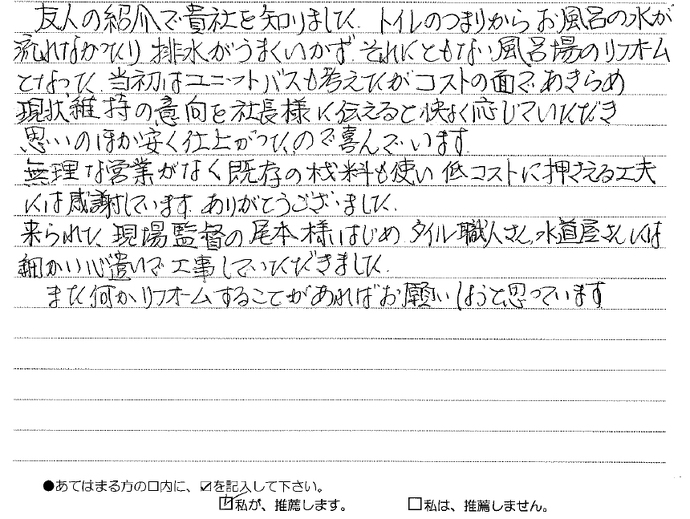 友人の紹介で貴社を知りました。トイレのつまりからお風呂の水が
流れなかったり 排水がうまくいかず それにともない風呂場のリフォーム
となった。当初はユニットバスも考えたがコストの面であきらめ
現状維持の意向を社長様に伝えると快よく応じていただき
思いのほか安く仕上がったので喜んでいます。
無理な営業がなく既存の材料も使い 低コストに押さえる工夫
には感謝しています。ありがとうございました。
来られた 現場監督の尾本様はじめ タイル職人さん、水道屋さんには
細かい心遣いで工事していただきました。
また何かリフォームすることがあればお願いしようと思っています
●あてはまる方の口内に、☑を記入して下さい。
☑私が、推薦します。 □私は、推薦しません。